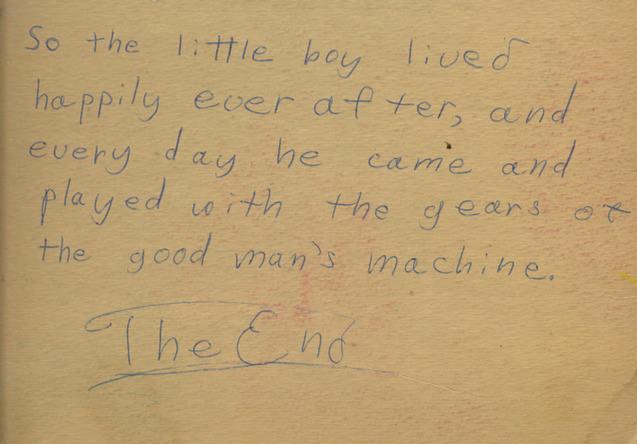 So the little boy lived
happily ever after, and
every day he came and
played with the gears of
the good man's machine.
The End